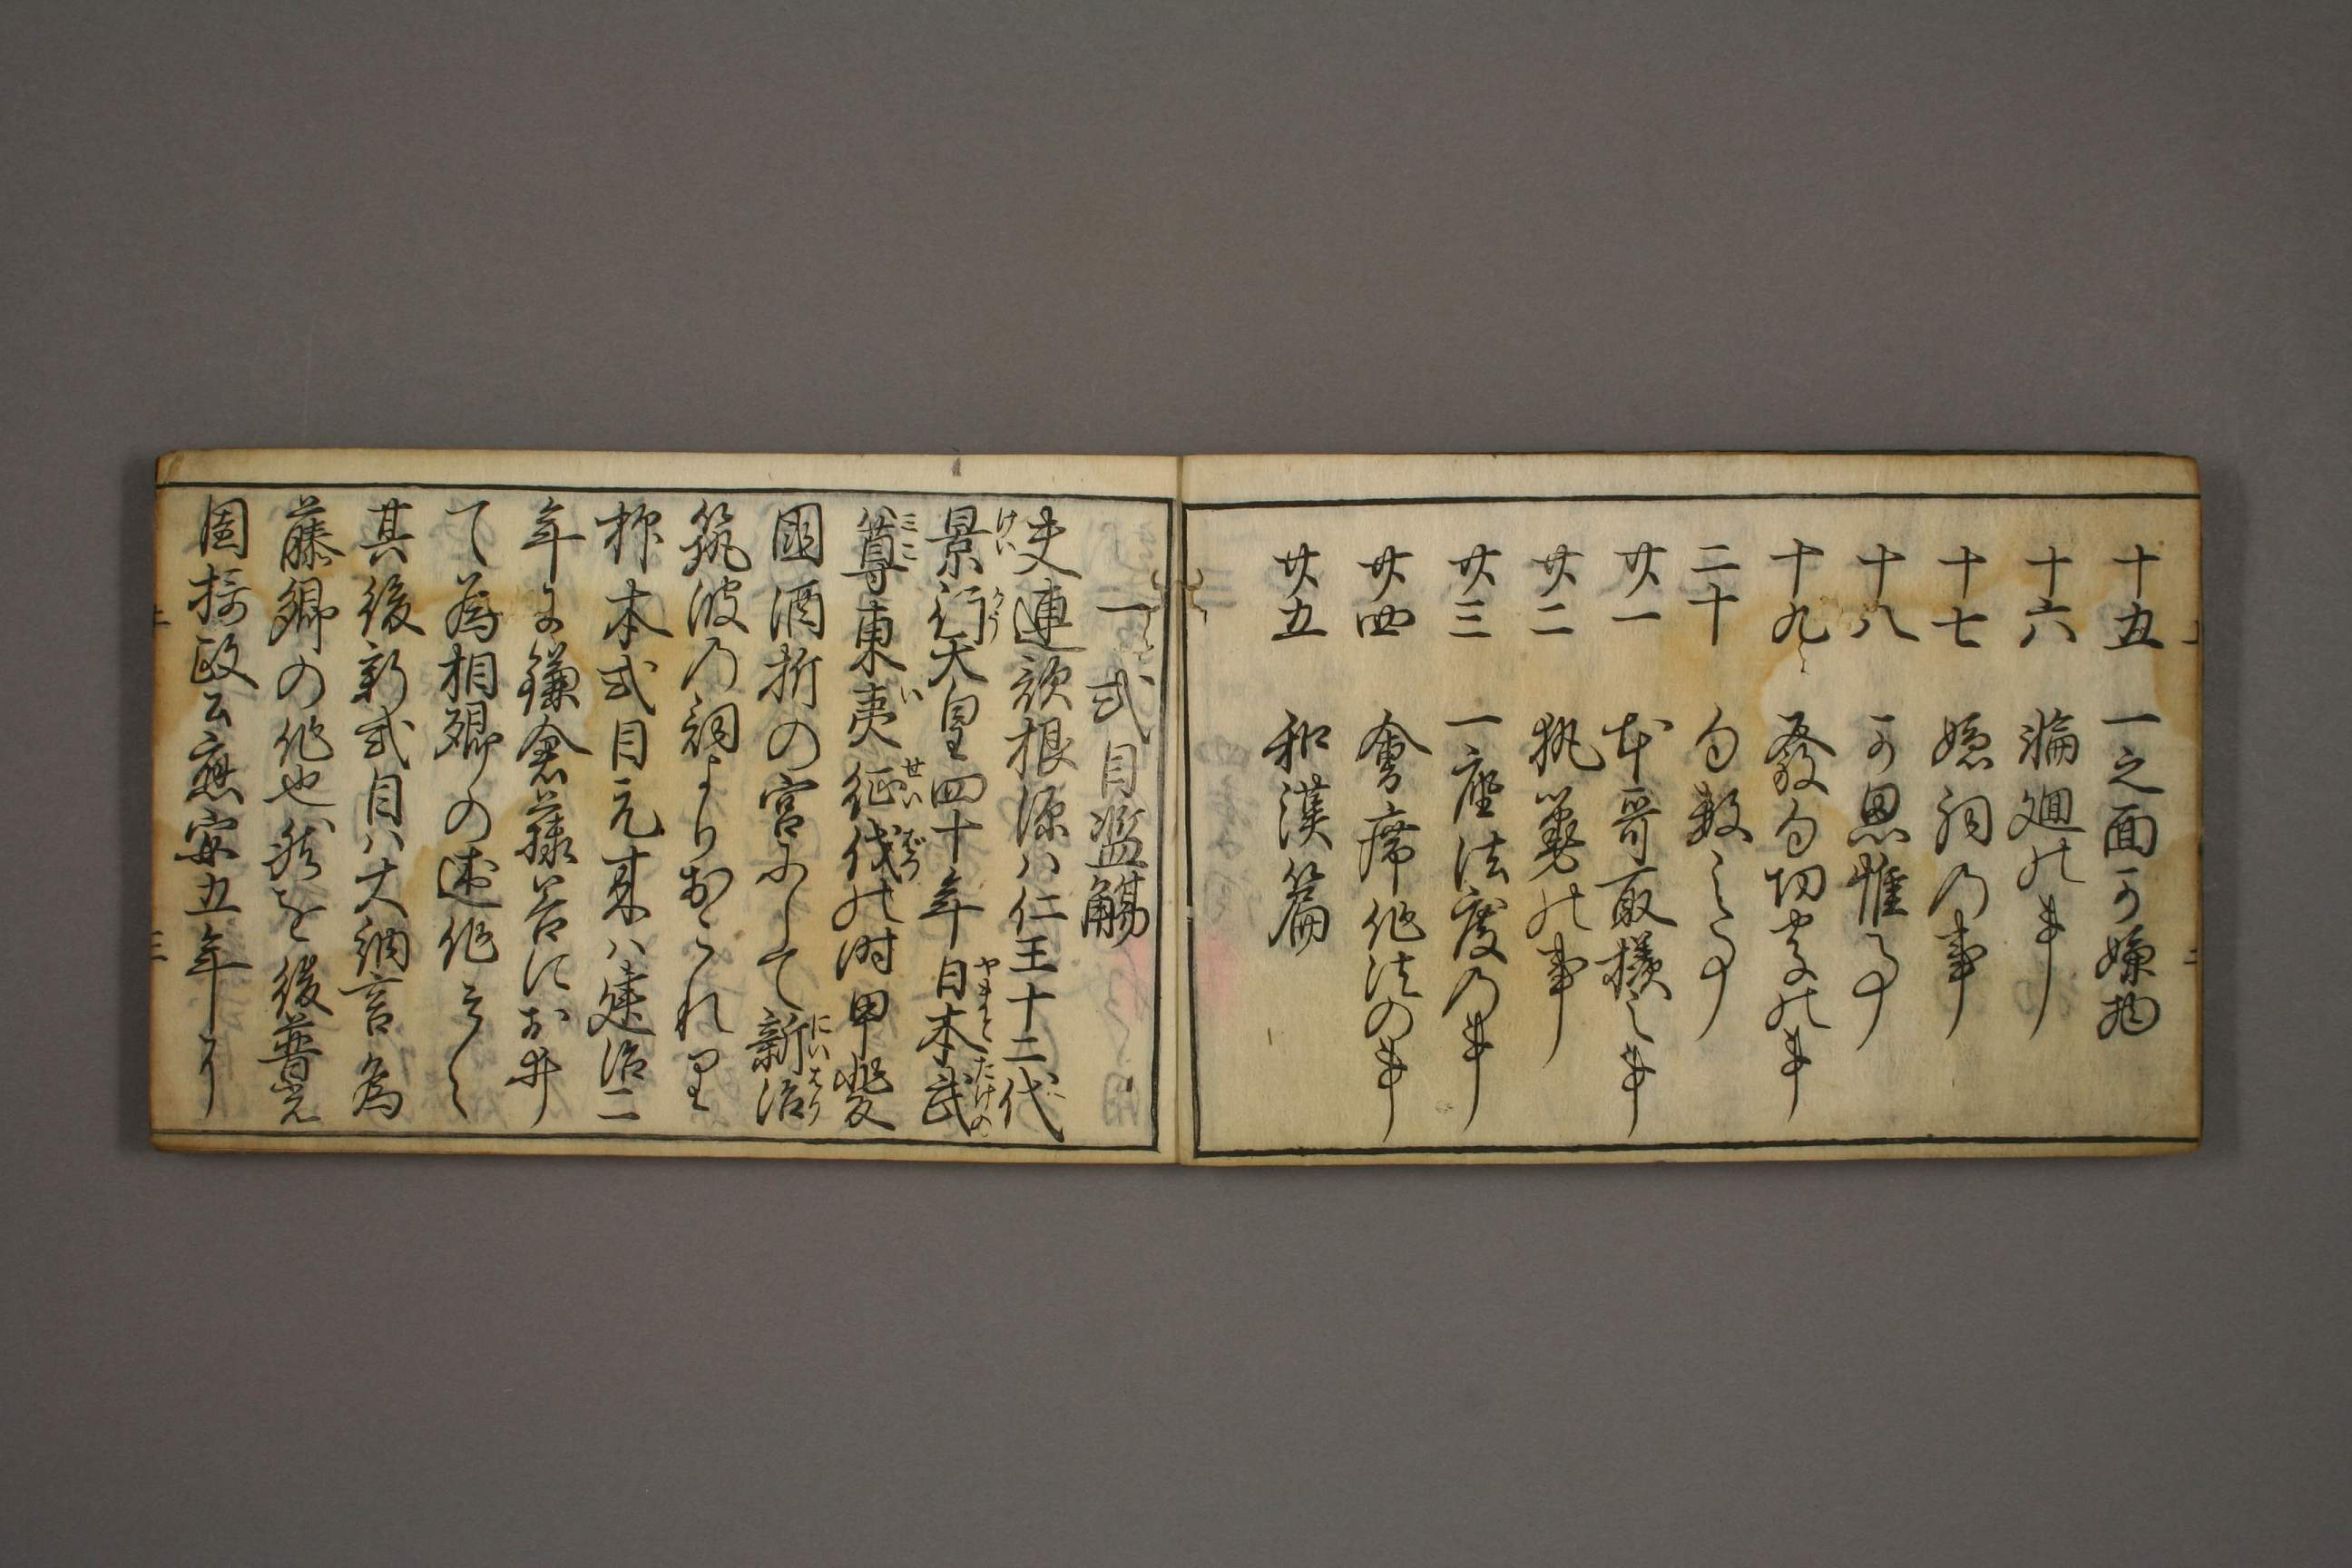 十五 一之面可嫌物
十六 輪廻の事
十七 嫌詞乃事
十八 可思惟之事
十九 發句切字の事
二十 句数之事
廿一 本哥取様之事
廿二 執筆の事
廿三 一座法度乃事
廿四 會席作法の事
廿五 和漢篇
一 式目濫觴
夫連歌根源ハ仁王十二代
景行天皇四十年日本武
尊東夷征伐の時甲斐
國酒折の宮にして新治
筑波乃詞よりおこれり
抑本式目元来ハ建治二
年に鎌倉藤谷におゐ
て為相卿の述作
其後新式目ハ大納言為
藤卿の作也然を後普光
園摂政公應安五年